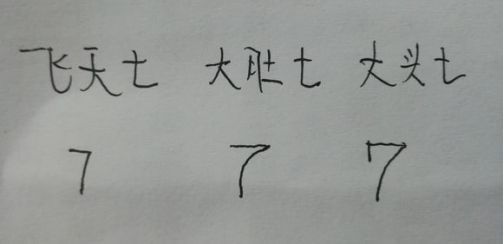 飞天七 大肚七 大头七
7 7 7